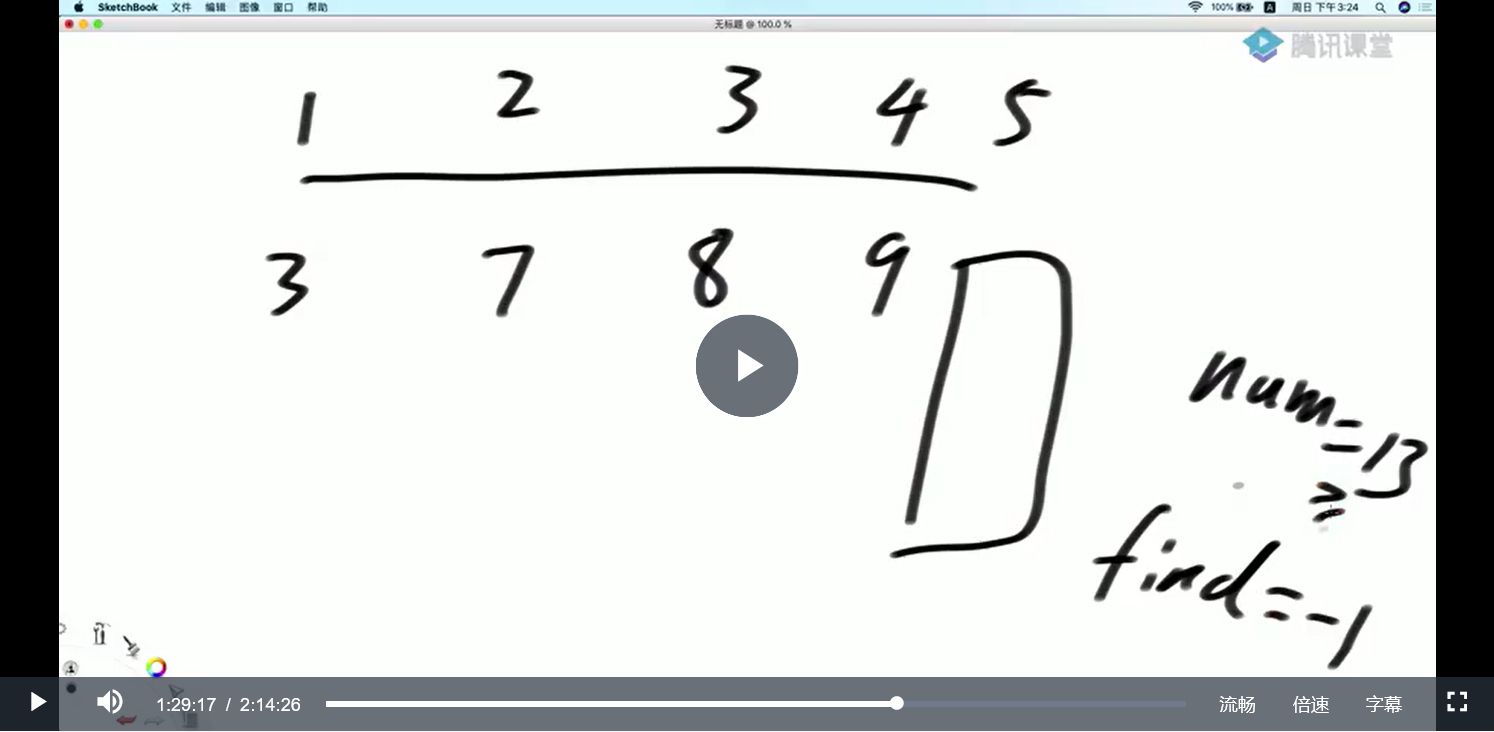 SketchBook 文件 编辑 图像 窗口 帮助 100% A 周日 下午3:24
无标题 @ 100.0 %
腾讯课堂
1 2 3 4 5
3 7 8 9
num=13
≥
find=-1
1:29:17 / 2:14:26 流畅 倍速 字幕